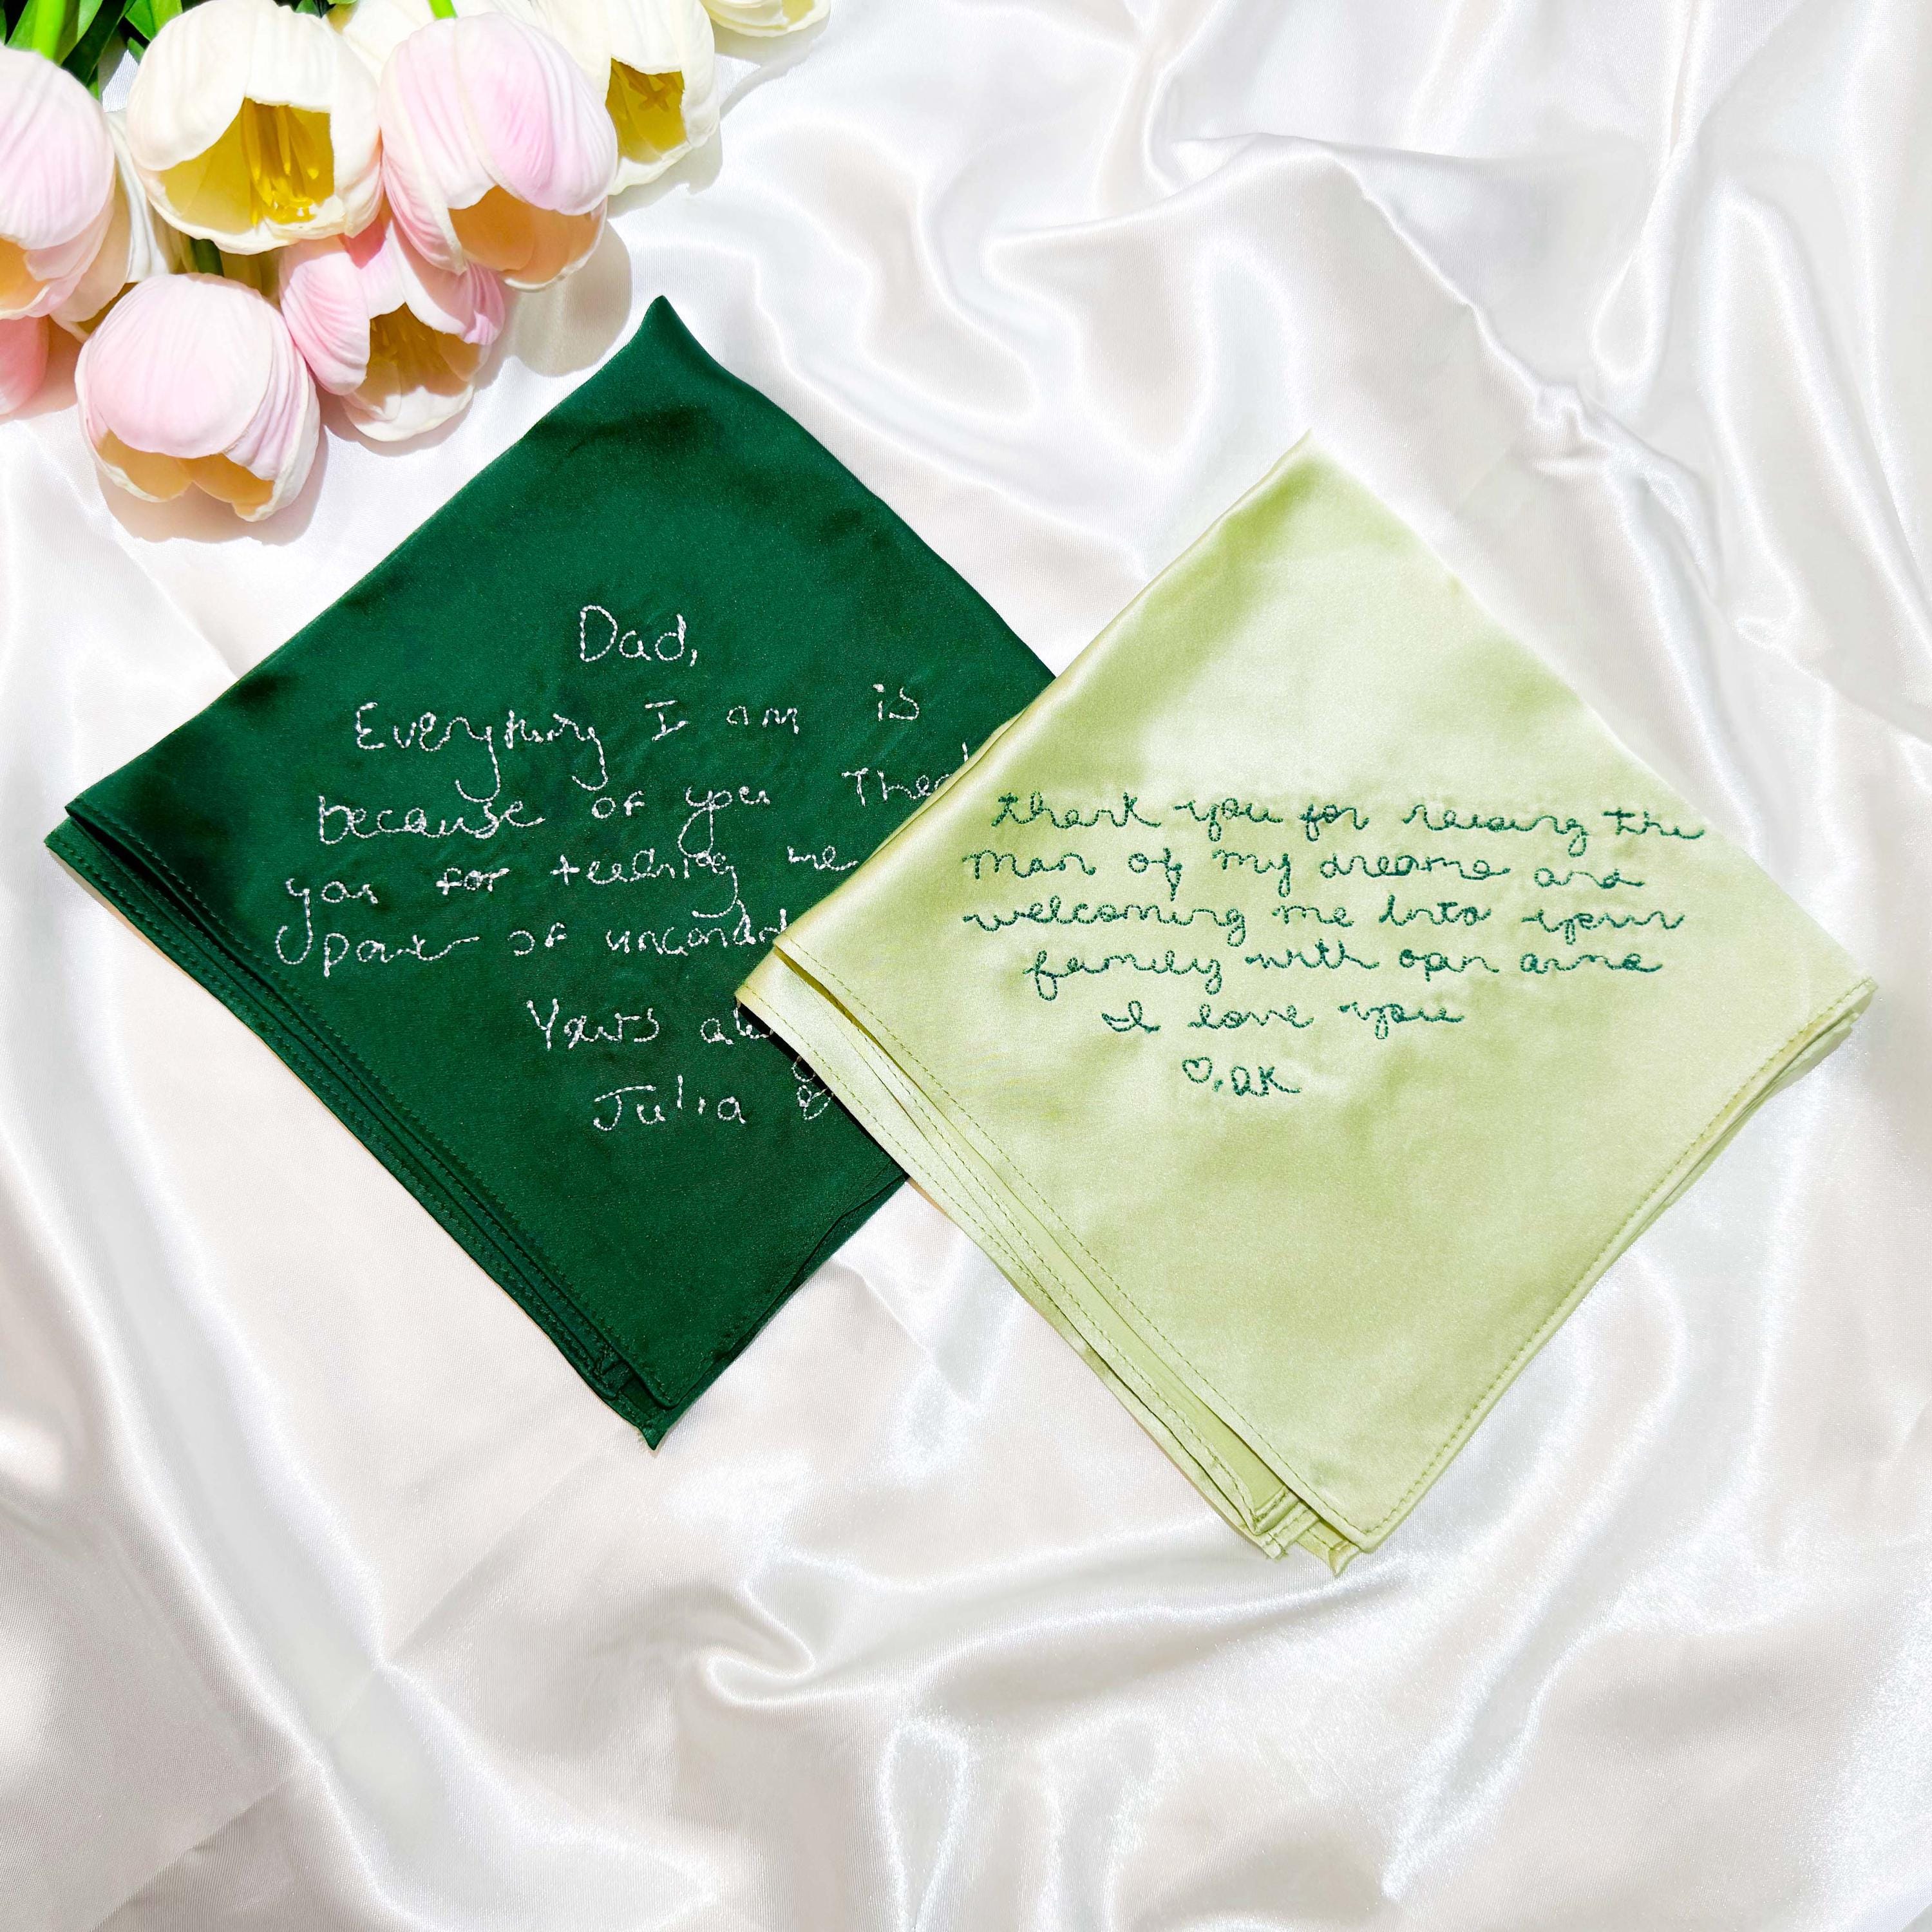 Dad,
Everything I am is
because of you Thank
you for teaching me
power of uncondit
Yours alw
Julia
thank you for raising the
man of my dreams and
welcoming me into your
family with open arms
I love you
♡, AK